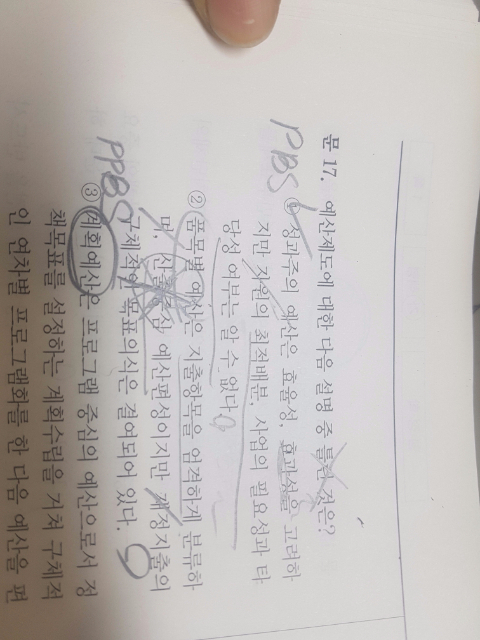 문 17. 예산제도에 대한 다음 설명 중 틀린 것은?
PBS
① 성과주의 예산은 효율성, 효과성을 고려하
지만 자원의 최적배분, 사업의 필요성과 타
당성 여부는 알 수 없다.
② 품목별 예산은 지출항목을 엄격하게 분류하
며, 산출중심 예산편성이지만 재정지출의
구체적인 목표의식은 결여되어 있다.
PPBS
③ 계획예산은 프로그램 중심의 예산으로서 정
책목표를 설정하는 계획수립을 거쳐 구체적
인 연차별 프로그램화를 한 다음 예산을 편